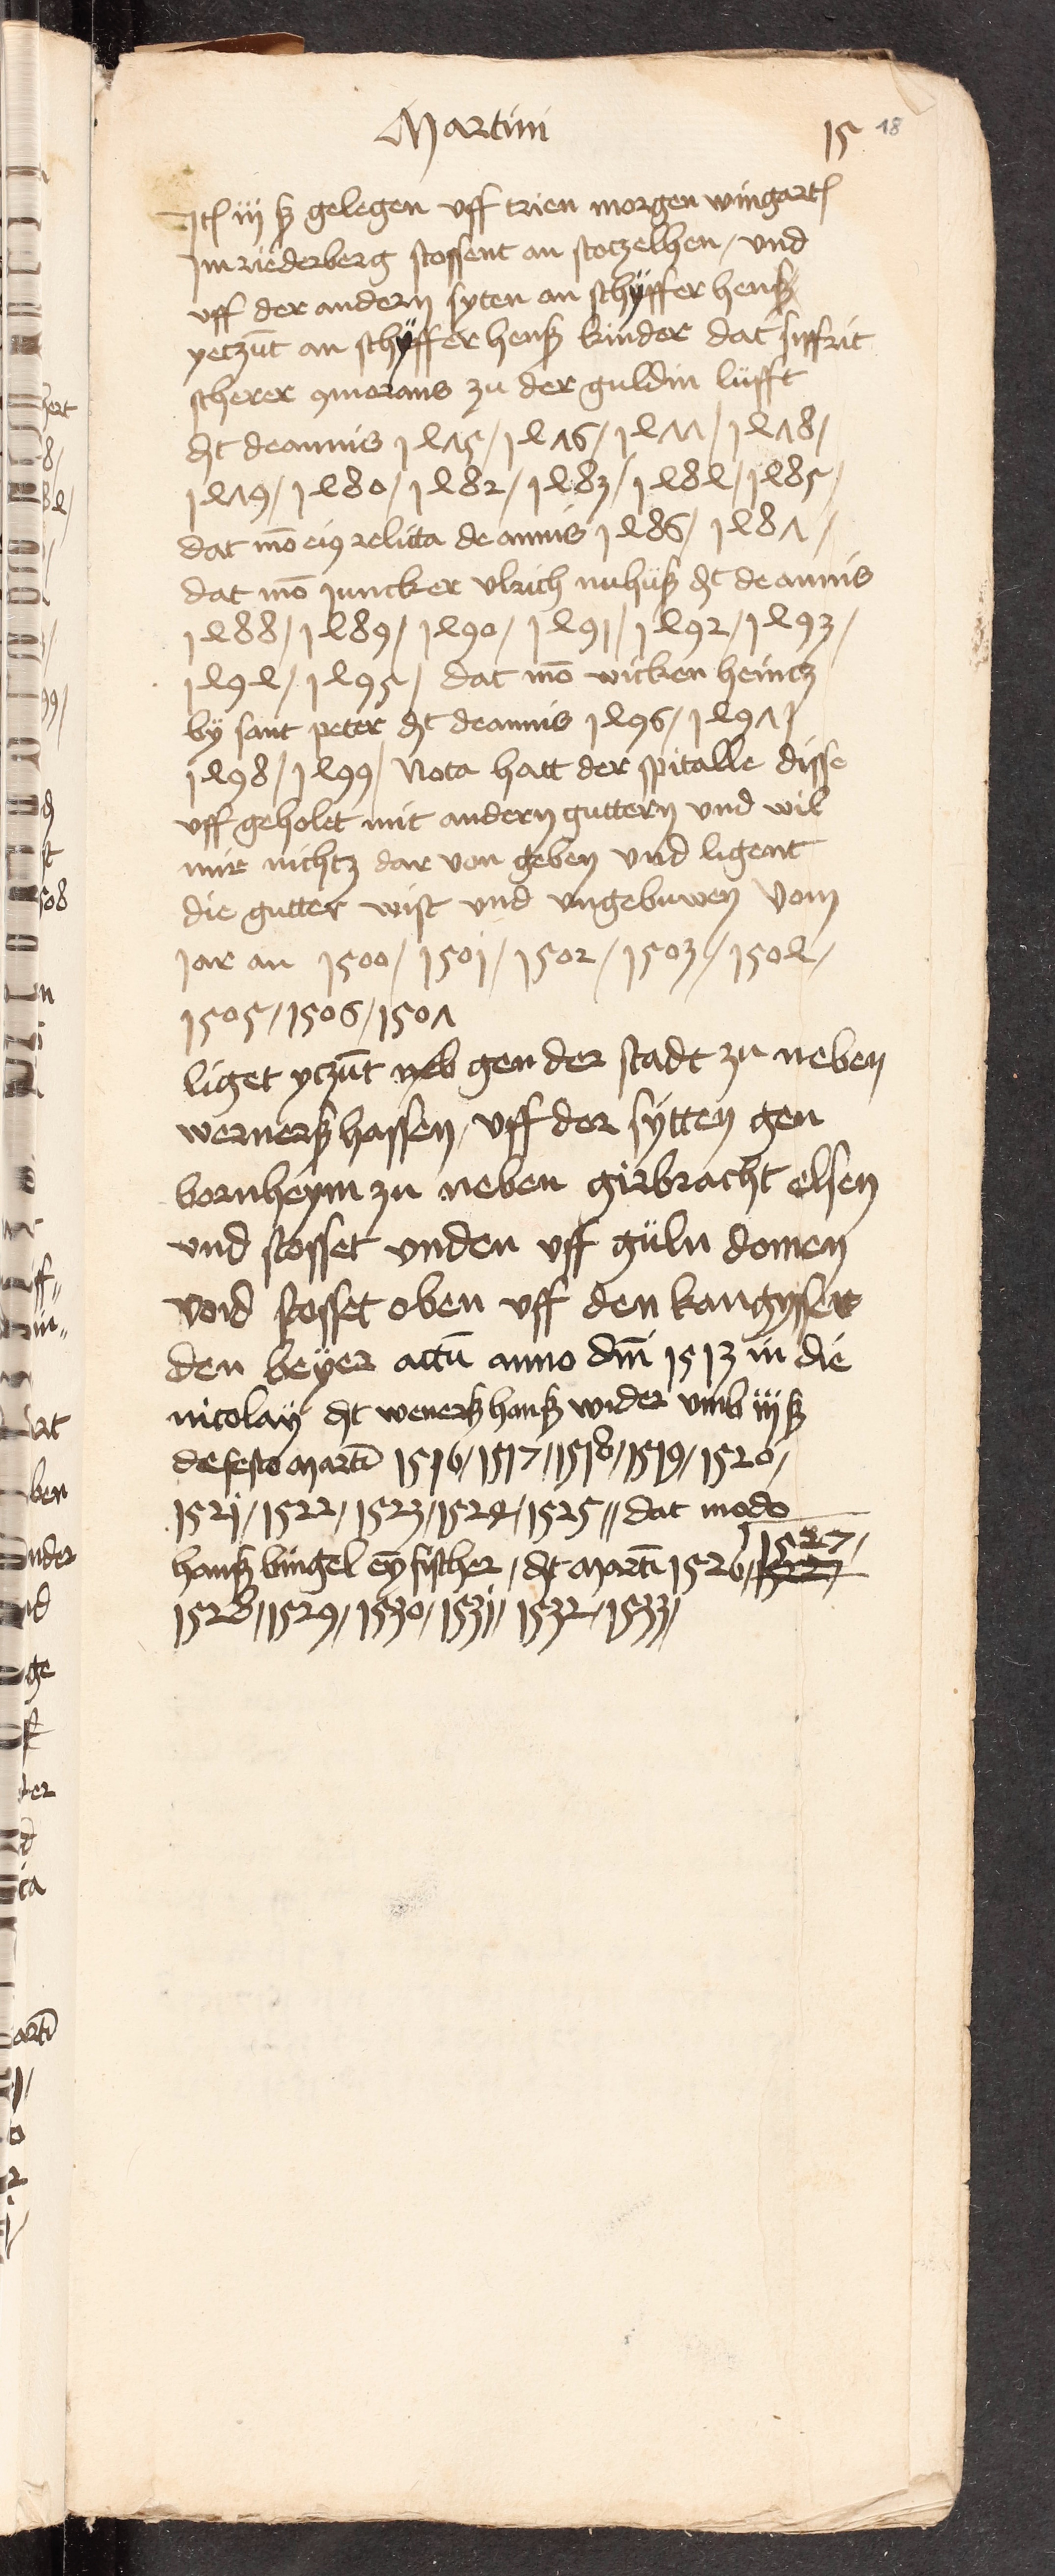 Martini 15 18
Itē iij ß gelegen vff trien morgen wingartē
Im riederberg stossent an stoczelhen / vnd
vff der andern syten an schÿffer henß
yeczūt an schÿffer henß kinder dat siffrit
scherer 9morans zu der guldin lüfft
dt de annis 1475 / 1476 / 1477 / 1478 /
1479 / 1480 / 1482 / 1483 / 1484 / 1485 /
dat mō ei9 relicta de annis 1486 / 1487 /
dat mō juncker vlrich nuhuß dt de annis
1488 / 1489 / 1490 / 1491 / 1492 / 1493 /
1494 / 1495 / dat mō wicken heincz
bÿ sant peter dt de annis 1496 / 1497 /
1498 / 1499 / Nota hatt der spitalle disse
vff geholet mit andern guttern vnd wil
mir nichtz dar von geben vnd ligent
die gutter wist vnd vngebuwen Vom
Jar an 1500 / 1501 / 1502 / 1503 / 1504 /
1505 / 1506 / 1507
liget yczūt neb gen der stadt zu neben
wernerß hassen / vff der sÿtten gen
bornheym zu neben girbracht elsen
vnd stosset vnden vff güln domen
vnd stosset oben vff den kangysser
den beÿer actū anno dnī 1513 in die
nicolaÿ dt wenerß hanß wider vmb iij ß
de festo martī 1516 / 1517 / 1518 / 1519 / 1520 /
1521 / 1522 / 1523 / 1524 / 1525 // dat modo
hanß bingel eȳ fischer / dt martī 1526 / 1527 /
1528 / 1529 / 1530 / 1531 / 1532 / 1533 /